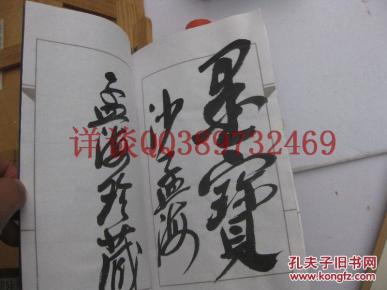 墨寶
沙孟海
孟海珍藏
详谈QQ389732469
孔夫子旧书网